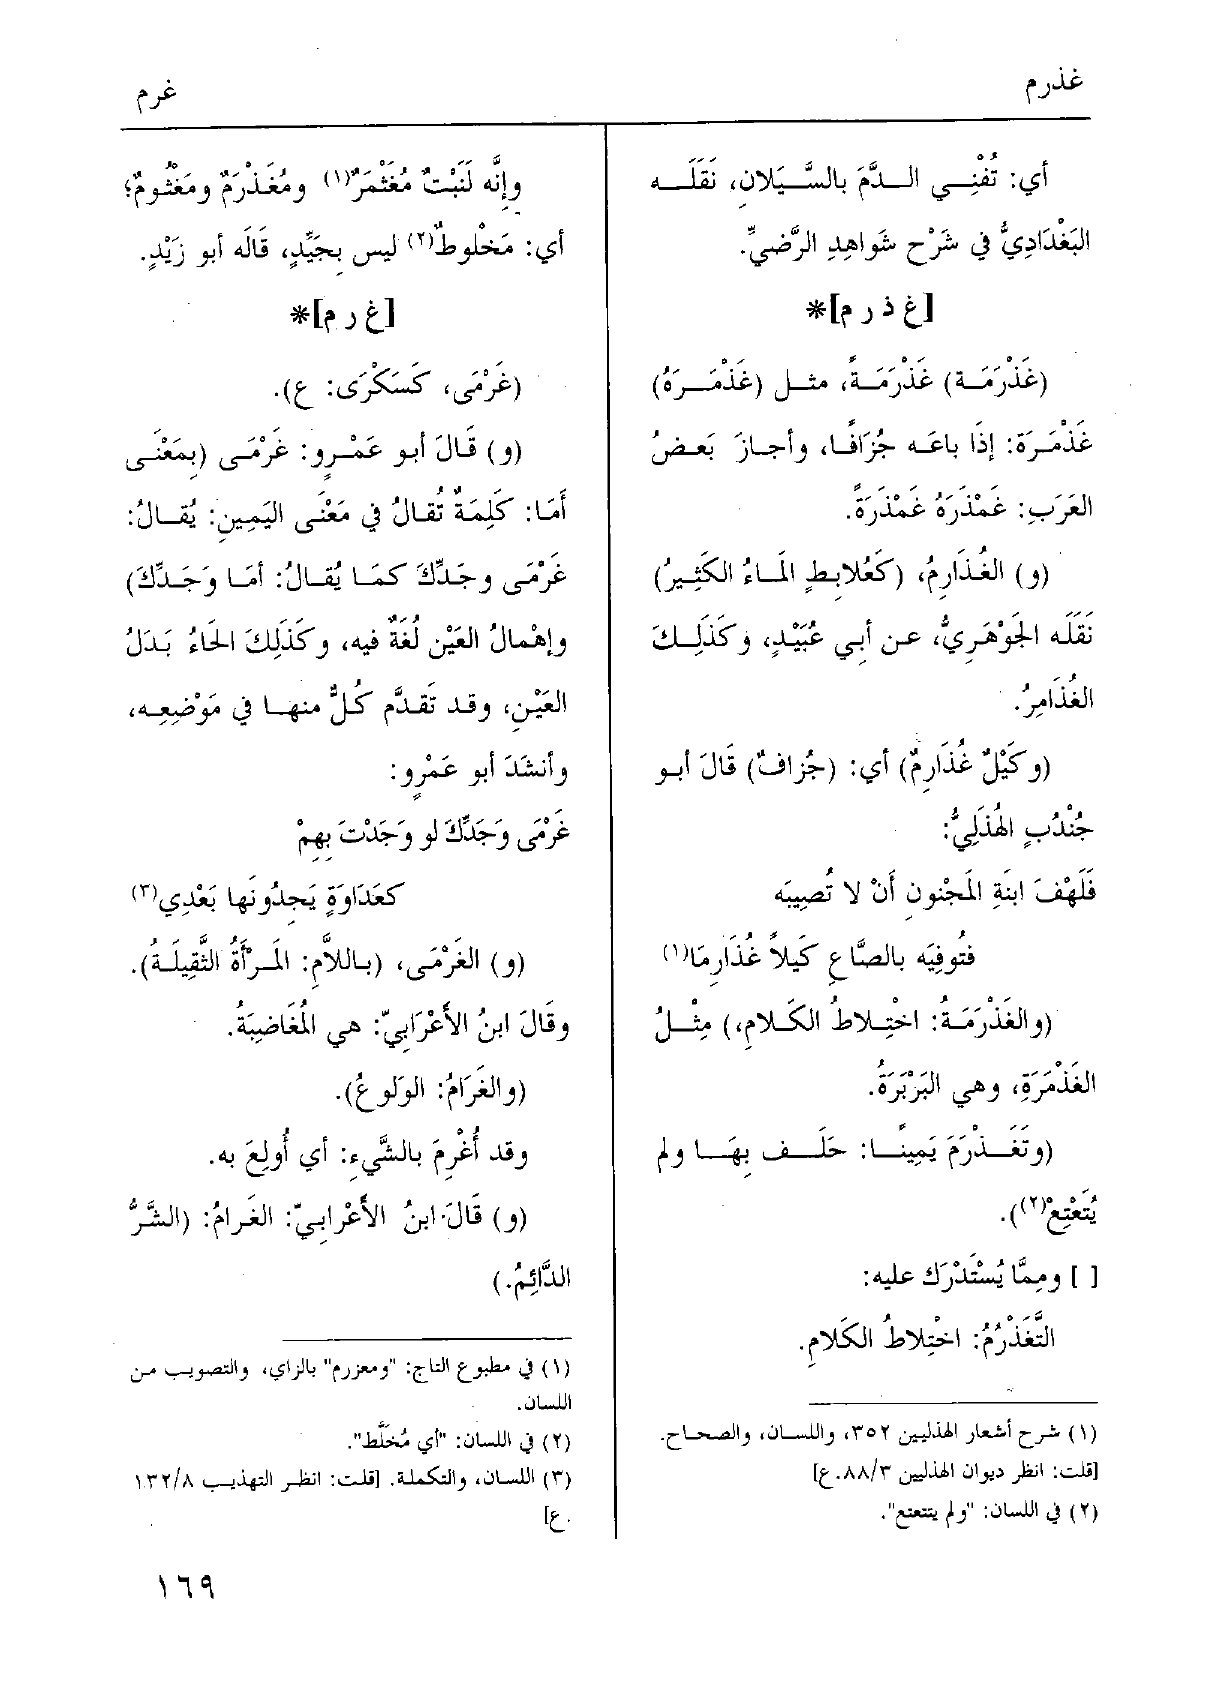 غذرم
غرم
أي: تُفْنِي الدَّمَ بالسَّيَلانِ، نَقَلَه
البَغْدَادِيُّ في شَرْح شَواهِدِ الرَّضيِّ.
[غ ذ ر م]*
(غَذْرَمَة) غَذْرَمَةً، مثل (غَذْمَرَهُ)
غَذْمَرَة: إذَا باعَه جُزَافًا، وأجازَ بَعضُ
العَرَبِ: غَمْذَرَهُ غَمْذَرَةً.
(و) الغُذَارِمُ، (كَعُلابطٍ الماءُ الكَثِيرُ)
نَقَلَه الجَوْهَرِيُّ، عن أبي عُبَيْدٍ، وكَذَلِكَ
الغُذَامِرُ.
(وكَيْلٌ غُذَارِمٌ) أي: (جُزافٌ) قَالَ أبو
جُنْدُبٍ الهُذَلِيُّ:
فَلَهْفَ ابنَةِ المَجْنونِ أَنْ لا تُصِيبَه
فتُوفِيَه بالصَّاعِ كَيلاً غُذَارِمَا(١)
(والغَذْرَمَةُ: اخْتِلاطُ الكَلامِ،) مِثْلُ
الغَذْمَرَةِ، وهي البَرْبَرَةُ.
(وتَغَذْرَمَ يَمِينًا: حَلَف بِهَا ولم
يُتَعْتِع(٢)).
[ ] ومِمَّا يُسْتَدْرَك عليه:
التَّغَذْرُمُ: اخْتِلاطُ الكَلامِ.
(١) شرح أشعار الهذليين ٣٥٢، واللسان، والصحاح.
[قلت: انظر ديوان الهذليين ٨٨/٣. ع]
(٢) في اللسان: "ولم يتتعتع".
وإنَّه لَنَبْتٌ مُغَثْمَرٌ(١) ومُغَذْرَمٌ ومَغْثُومٌ؛
أي: مَخْلوطٌ(٢) ليس بِجَيِّدٍ، قَالَه أبو زَيْدٍ.
[غ ر م]*
(غَرْمَى، كَسَكْرَى: ع).
(و) قَالَ أبو عَمْرٍو: غَرْمَى (بِمَعْنَى
أَمَا: كَلِمَةٌ تُقالُ في مَعْنَى اليَمِينِ: يُقالُ:
غَرْمَى وجَدِّكَ كمَا يُقالُ: أمَا وَجَدِّكَ)
وإهْمالُ العَيْن لُغَةٌ فيه، وكَذَلِكَ الحَاءُ بَدَلُ
العَيْنِ، وقد تَقَدَّم كُلٌّ منها في مَوْضِعِه،
وأنشَدَ أبو عَمْرٍو:
غَرْمَى وَجَدِّكَ لو وَجَدْتَ بِهِمْ
كعَدَاوَةٍ يَجِدُونَها بَعْدِي(٣)
(و) الغَرْمَى، (باللاَّم: المَرْأةُ الثَّقِيلَةُ).
وقَالَ ابنُ الأَعْرَابِيّ: هي المُغَاضِبَةُ.
(والغَرَامُ: الوَلوعُ).
وقد أُغْرِمَ بالشَّيءِ: أي أُولِعَ به.
(و) قَالَ ابنُ الأَعْرابِيّ: الغَرامُ: (الشَّرُّ
الدَّائِمُ.)
(١) في مطبوع التاج: "ومعزرم" بالزاي، والتصويب من
اللسان.
(٢) في اللسان: "أي مُخَلَّط".
(٣) اللسان، والتكملة. [قلت: انظر التهذيب ١٣٢/٨
.ع]
١٦٩